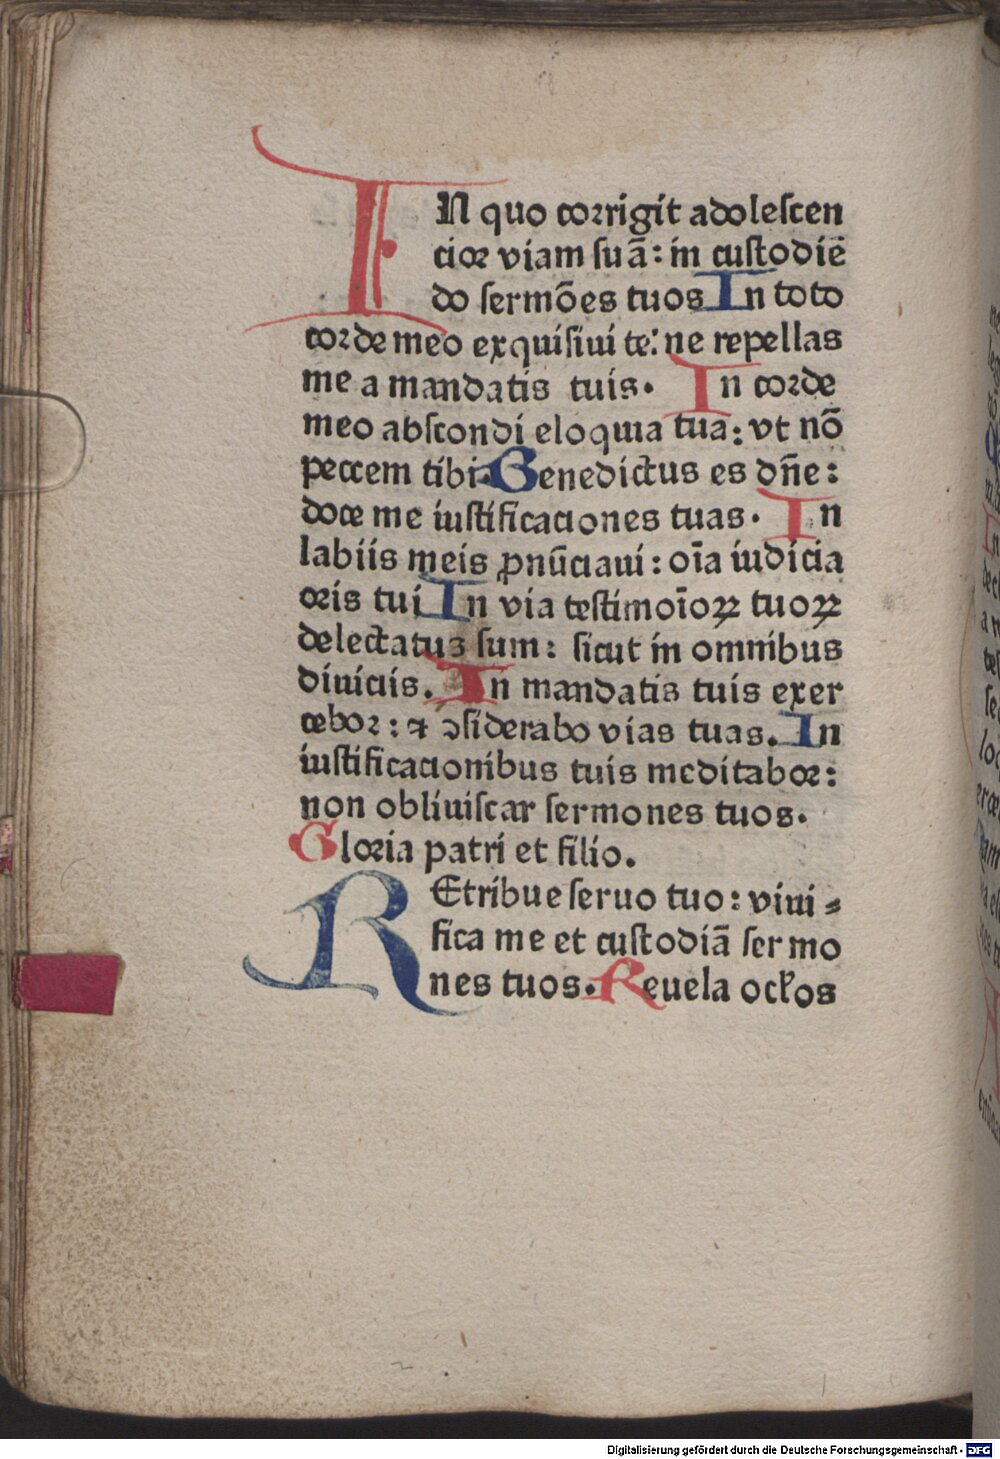 IN quo corrigit adolescen
cior viam suā: in custodiē
do sermōes tuos In toto
corde meo exquisiui te: ne repellas
me a mandatis tuis. In corde
meo abscondi eloquia tua: vt nō
peccem tibi. Benedictus es dn̄e:
doce me iustificaciones tuas. In
labiis meis ꝓnūciaui: oīa iudicia
oris tui In via testimoīoꝝ tuoꝝ
delectatuꝫ sum: sicut in omnibus
diuiciis. In mandatis tuis exer
cebor: ⁊ ꝯsiderabo vias tuas. In
iustificacionibus tuis meditabor:
non obliuiscar sermones tuos.
Gloria patri et filio.
REtribue seruo tuo: viui⸗
fica me et custodiā sermo
nes tuos. Reuela ocl̓os
Digitalisierung gefördert durch die Deutsche Forschungsgemeinschaft - DFG